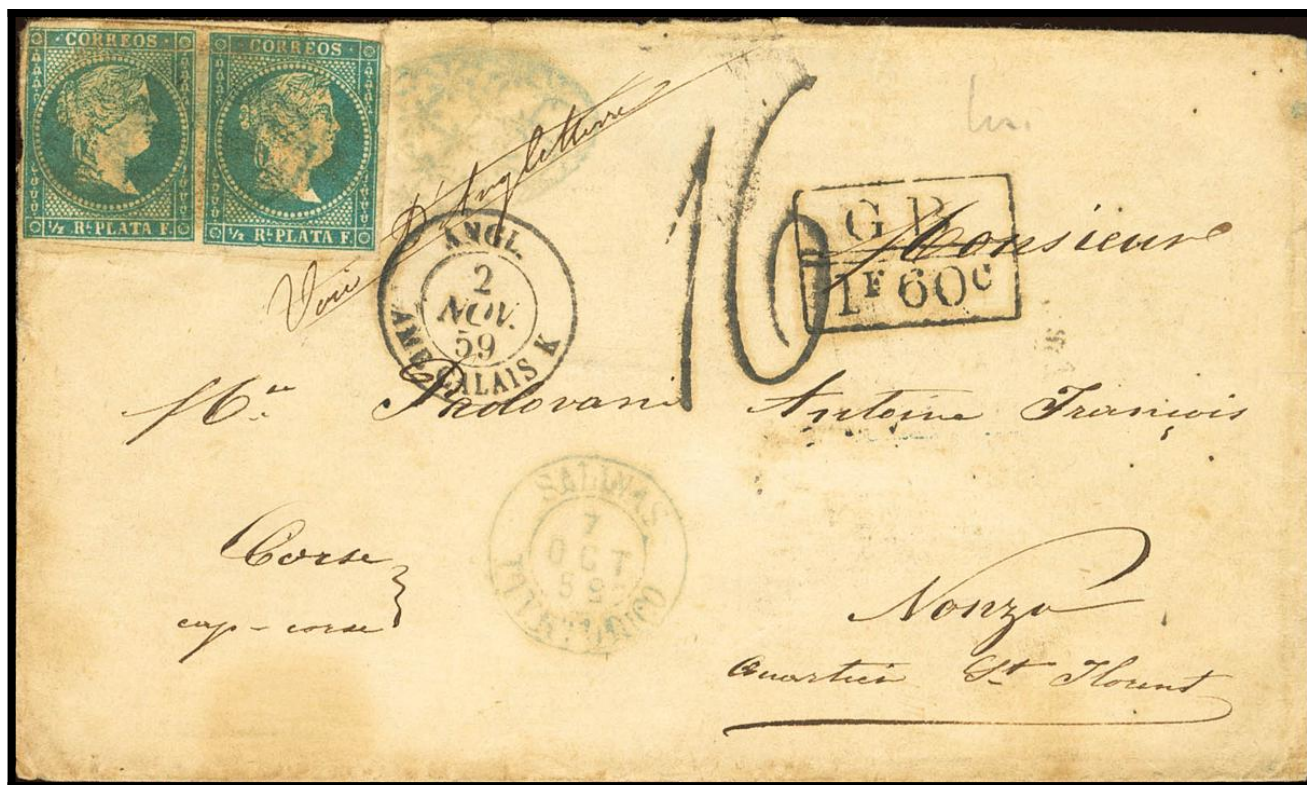 CORREOS
½ Rˡ PLATA F.
CORREOS
½ Rˡ PLATA F.
Voie d'Angleterre
ANGL.
2
NOV.
59
AMB. CALAIS K
16
G B
1F 60c
Monsieur
Mr. Padovani Antoine François
SALINAS
7
OCT
59
PUERTO-RICO
Corse
cap-corse
Nonza
Quartier St Florent